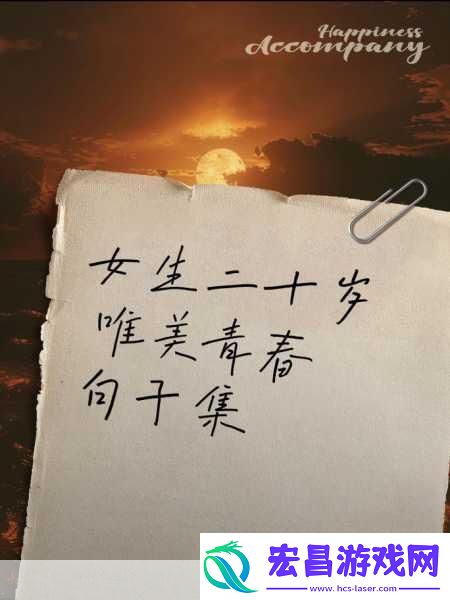 Happiness
Accompany
女生二十岁
唯美青春
句子集
宏昌游戏网
www.hcs-laser.com